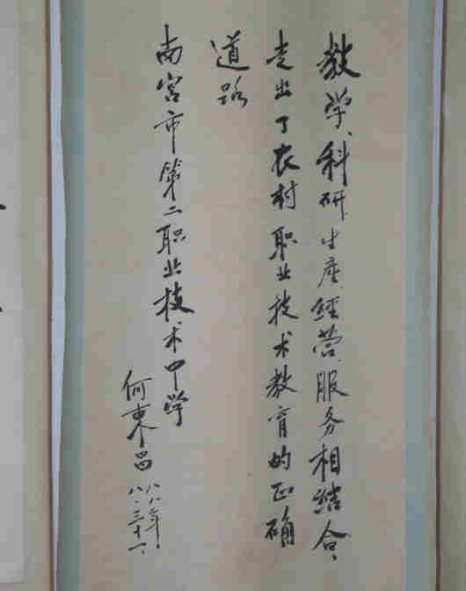 教学、科研、生産、經营、服务相結合,
走出了农村职业技术教育的正确
道路
南宫市第二职业技术中学
何東昌
八八年.
八.三十一.